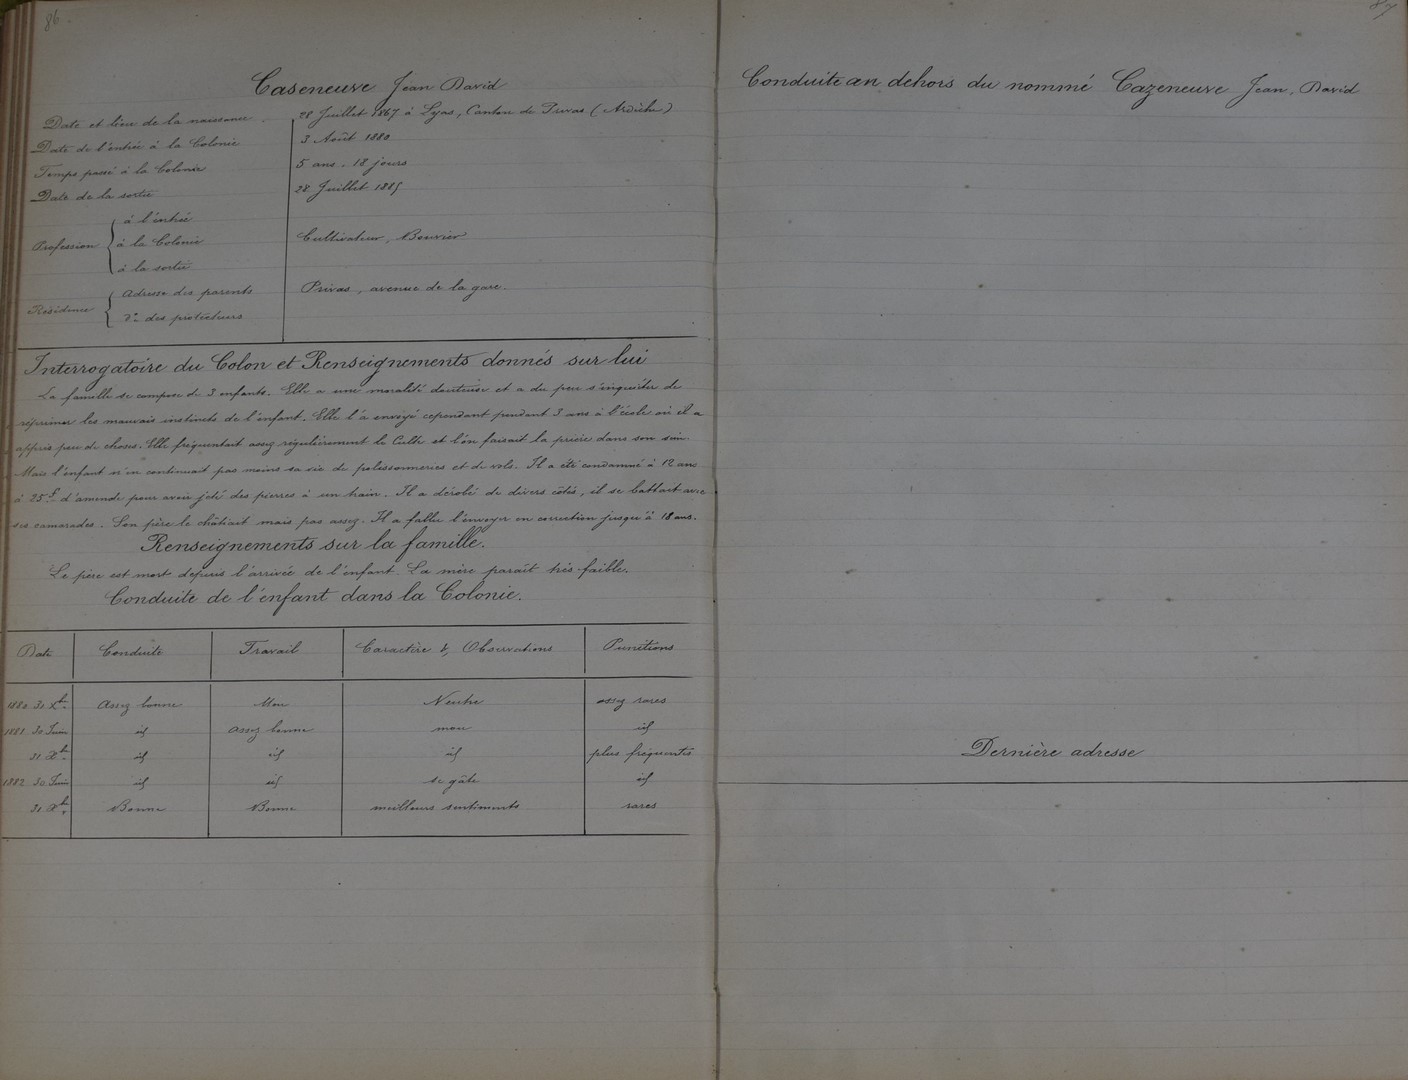 86.
Caseneuve Jean David
Date et lieu de la naissance. 28 Juillet 1867 à Lyas, Canton de Privas (Ardèche)
Date de l'entrée à la Colonie 3 Août 1880
Temps passé à la Colonie 5 ans. 18 jours
Date de la sortie 28 Juillet 1885
Profession
à l'entrée
à la Colonie Cultivateur, Bouvier
à la sortie
Résidence
Adresse des parents Privas, avenue de la gare.
do des protecteurs
Interrogatoire du Colon et Renseignements donnés sur lui
La famille se compose de 3 enfants. Elle a une moralité douteuse et a du peu s'inquiéter de
réprimer les mauvais instincts de l'enfant. Elle l'a envoyé cependant pendant 3 ans à l'école où il a
appris peu de choses. Elle fréquentait assez régulièrement le Culte et l'on faisait la prière dans son sein.
Mais l'enfant n'en continuait pas moins sa vie de polissonneries et de vols. Il a été condamné à 12 ans
à 25f d'amende pour avoir jeté des pierres à un train. Il a dérobé de divers côtés, il se battait avec
ses camarades. Son père le châtiait mais pas assez. Il a fallu l'envoyer en correction jusqu'à 18 ans.
Renseignements sur la famille.
Le père est mort depuis l'arrivée de l'enfant. La mère paraît très-faible.
Conduite de l'enfant dans la Colonie.
Date Conduite Travail Caractère & Observations Punitions
1880 31 Xbre Assez bonne Mou Neutre assez rares
1881 30 Juin id assez bonne mou id
31 Xbre id id id plus fréquentes
1882 30 Juin id id se gâte id
31 Xbre Bonne Bonne meilleurs sentiments rares
87
Conduite au dehors du nommé Cazeneuve Jean, David
Dernière adresse